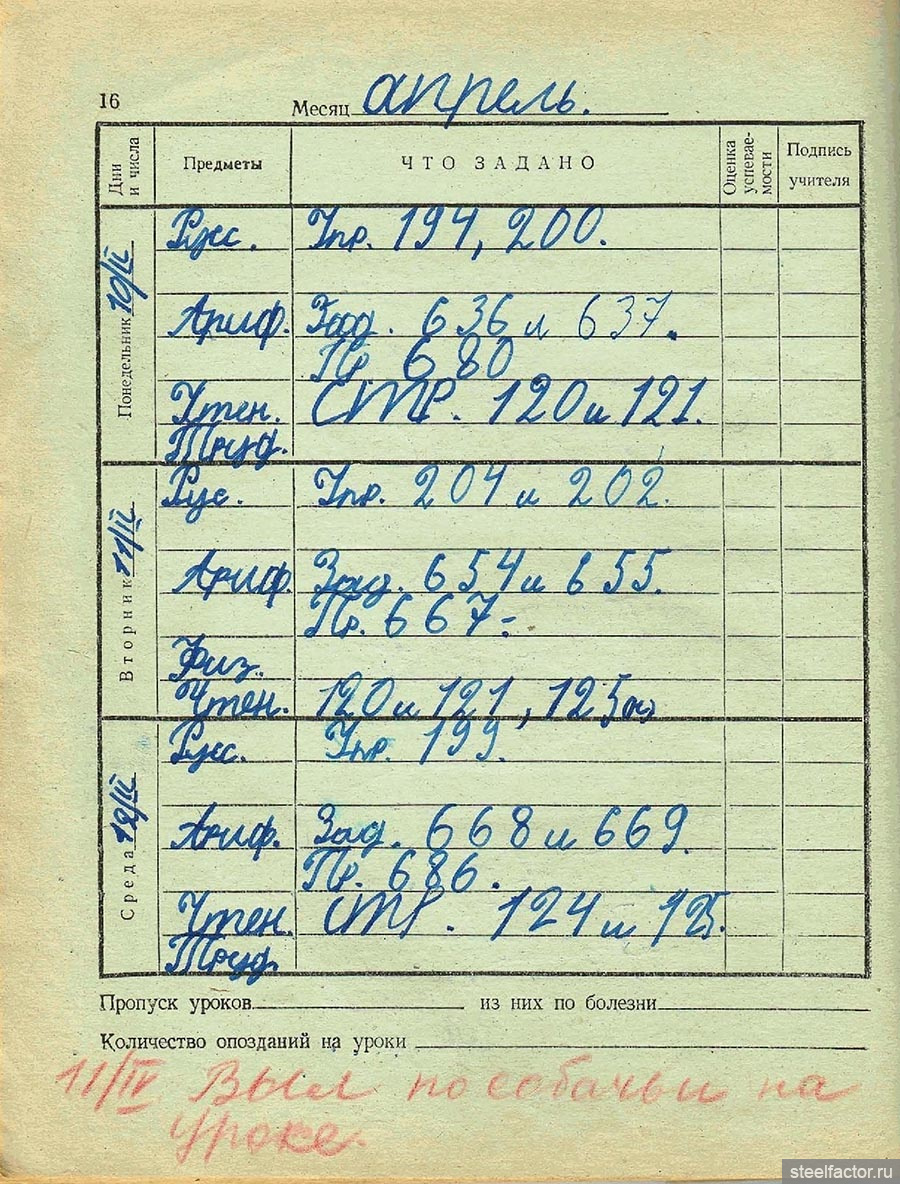 16
Месяц апрель.
Дни и числа Предметы ЧТО ЗАДАНО Оценка успеваемости Подпись учителя
Понедельник 10/IV
Русс. Упр. 194, 200.
Ариф. Зад. 636 и 637.
Пр 680
Чтен. СТР. 120 и 121.
Труд.
Вторник 11/IV
Рус. Упр. 204 и 202.
Ариф. Зад. 654 и 655.
Пр. 667-
Физ.
Чтен. 120 и 121, 125
Среда 12/IV
Русс. Упр. 199.
Ариф. Зад. 668 и 669.
Пр. 686.
Чтен. СТР. 124 и 125.
Труд.
Пропуск уроков из них по болезни
Количество опозданий на уроки
11/IV Выл по собачьи на
уроке.
steelfactor.ru